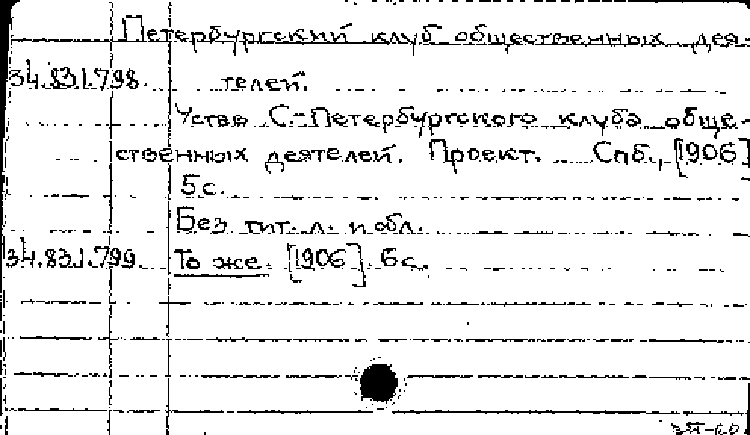 Петербургский клуб общественных дея-
34.831.798. телей.
Устав С.-Петербургского клуба обще-
ственных деятелей. Проект. Спб., [1906]
5 с.
Без тит. л. и обл.
34.831.799. То же. [1906] 6 с.